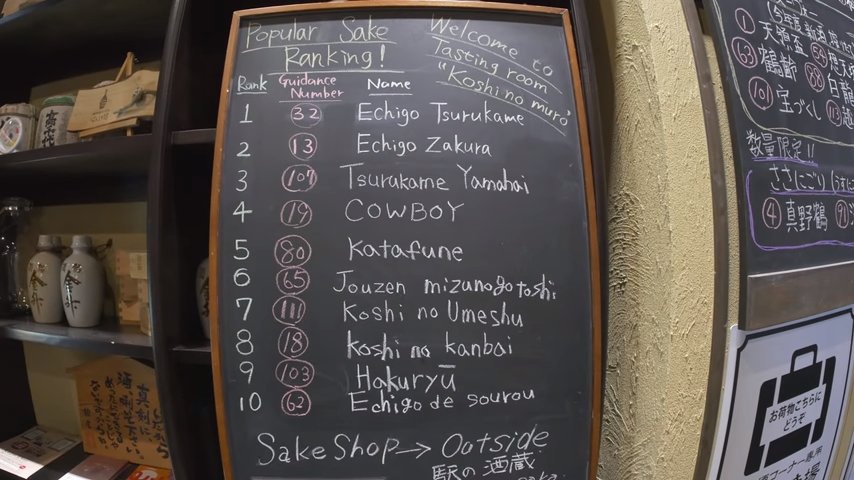 Popular Sake
Ranking!
Welcome to
Tasting room
"Koshi no muro"
Rank Guidance Number Name
1 32 Echigo Tsurukame
2 13 Echigo Zakura
3 107 Tsurukame Yamahai
4 19 COWBOY
5 80 Katafune
6 65 Jouzen mizunogotoshi
7 111 Koshi no Umeshu
8 18 Koshi no kanbai
9 103 Hakuryū
10 62 Echigo de sourou
Sake Shop → Outside
駅の酒蔵
① 天領盃
63 鶴齢
88 白龍
101 宝づくし
数量限定!!
ささにごり
④ 真野鶴 91
お荷物こちらに
どうぞ
コーナー専用